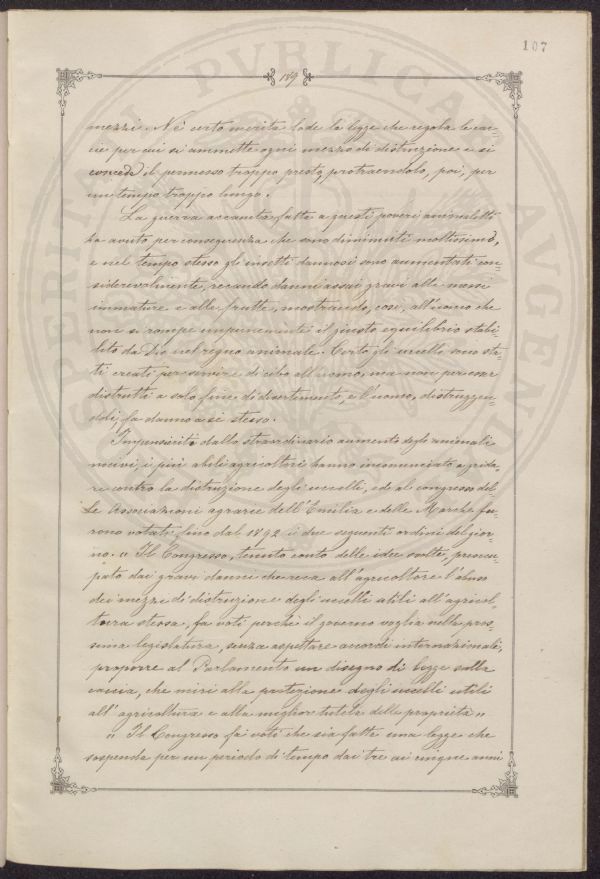 107
189
mezzi. Nè certo merita lode la legge che regola le cac-
cie per cui si ammette ogni mezzo di distruzione e si
concede il permesso troppo presto, protraendolo, poi, per
un tempo troppo lungo.
La guerra accanita, fatta a questi poveri animaletti
ha avuto per conseguenza che sono diminuiti moltissimo,
e nel tempo stesso gli insetti dannosi sono aumentati con-
siderevolmente, recando danni assai gravi alle messi
immature e alle frutte, mostrando, così, all'uomo che
non si rompe impunemente il giusto equilibrio stabi-
lito da Dio nel regno animale. Certo gli uccelli sono sta-
ti creati per servire di cibo all'uomo, ma non per esser
distrutti a solo fine di divertimento, e l'uomo, distruggen-
doli, fa danno a sè stesso.
Impensierito dallo straordinario aumento degli animali
nocivi, i più abili agricoltori hanno incominciato a grida-
re contro la distruzione degli uccelli, ed al congresso del-
le Associazioni agrarie dell'Emilia e delle Marche fu-
rono votati fino dal 1892 i due seguenti ordini del gior-
no. « Il Congresso, tenuto conto delle idee svolte, preoccu-
pato dai gravi danni che reca all'agricoltore l'abuso
dei mezzi di distruzione degli uccelli utili all'agricol-
tura stessa, fa voti perchè il governo voglia nella pros-
sima legislatura, senza aspettare accordi internazionali,
proporre al Parlamento un disegno di legge sulla
caccia, che miri alla protezione degli uccelli utili
all'agricoltura e alla miglior tutela delle proprietà »
« Il Congresso fa voti che sia fatta una legge che
sospenda per un periodo di tempo dai tre ai cinque anni
PVBLICAE
AVGENDAE
PROSPERITATI